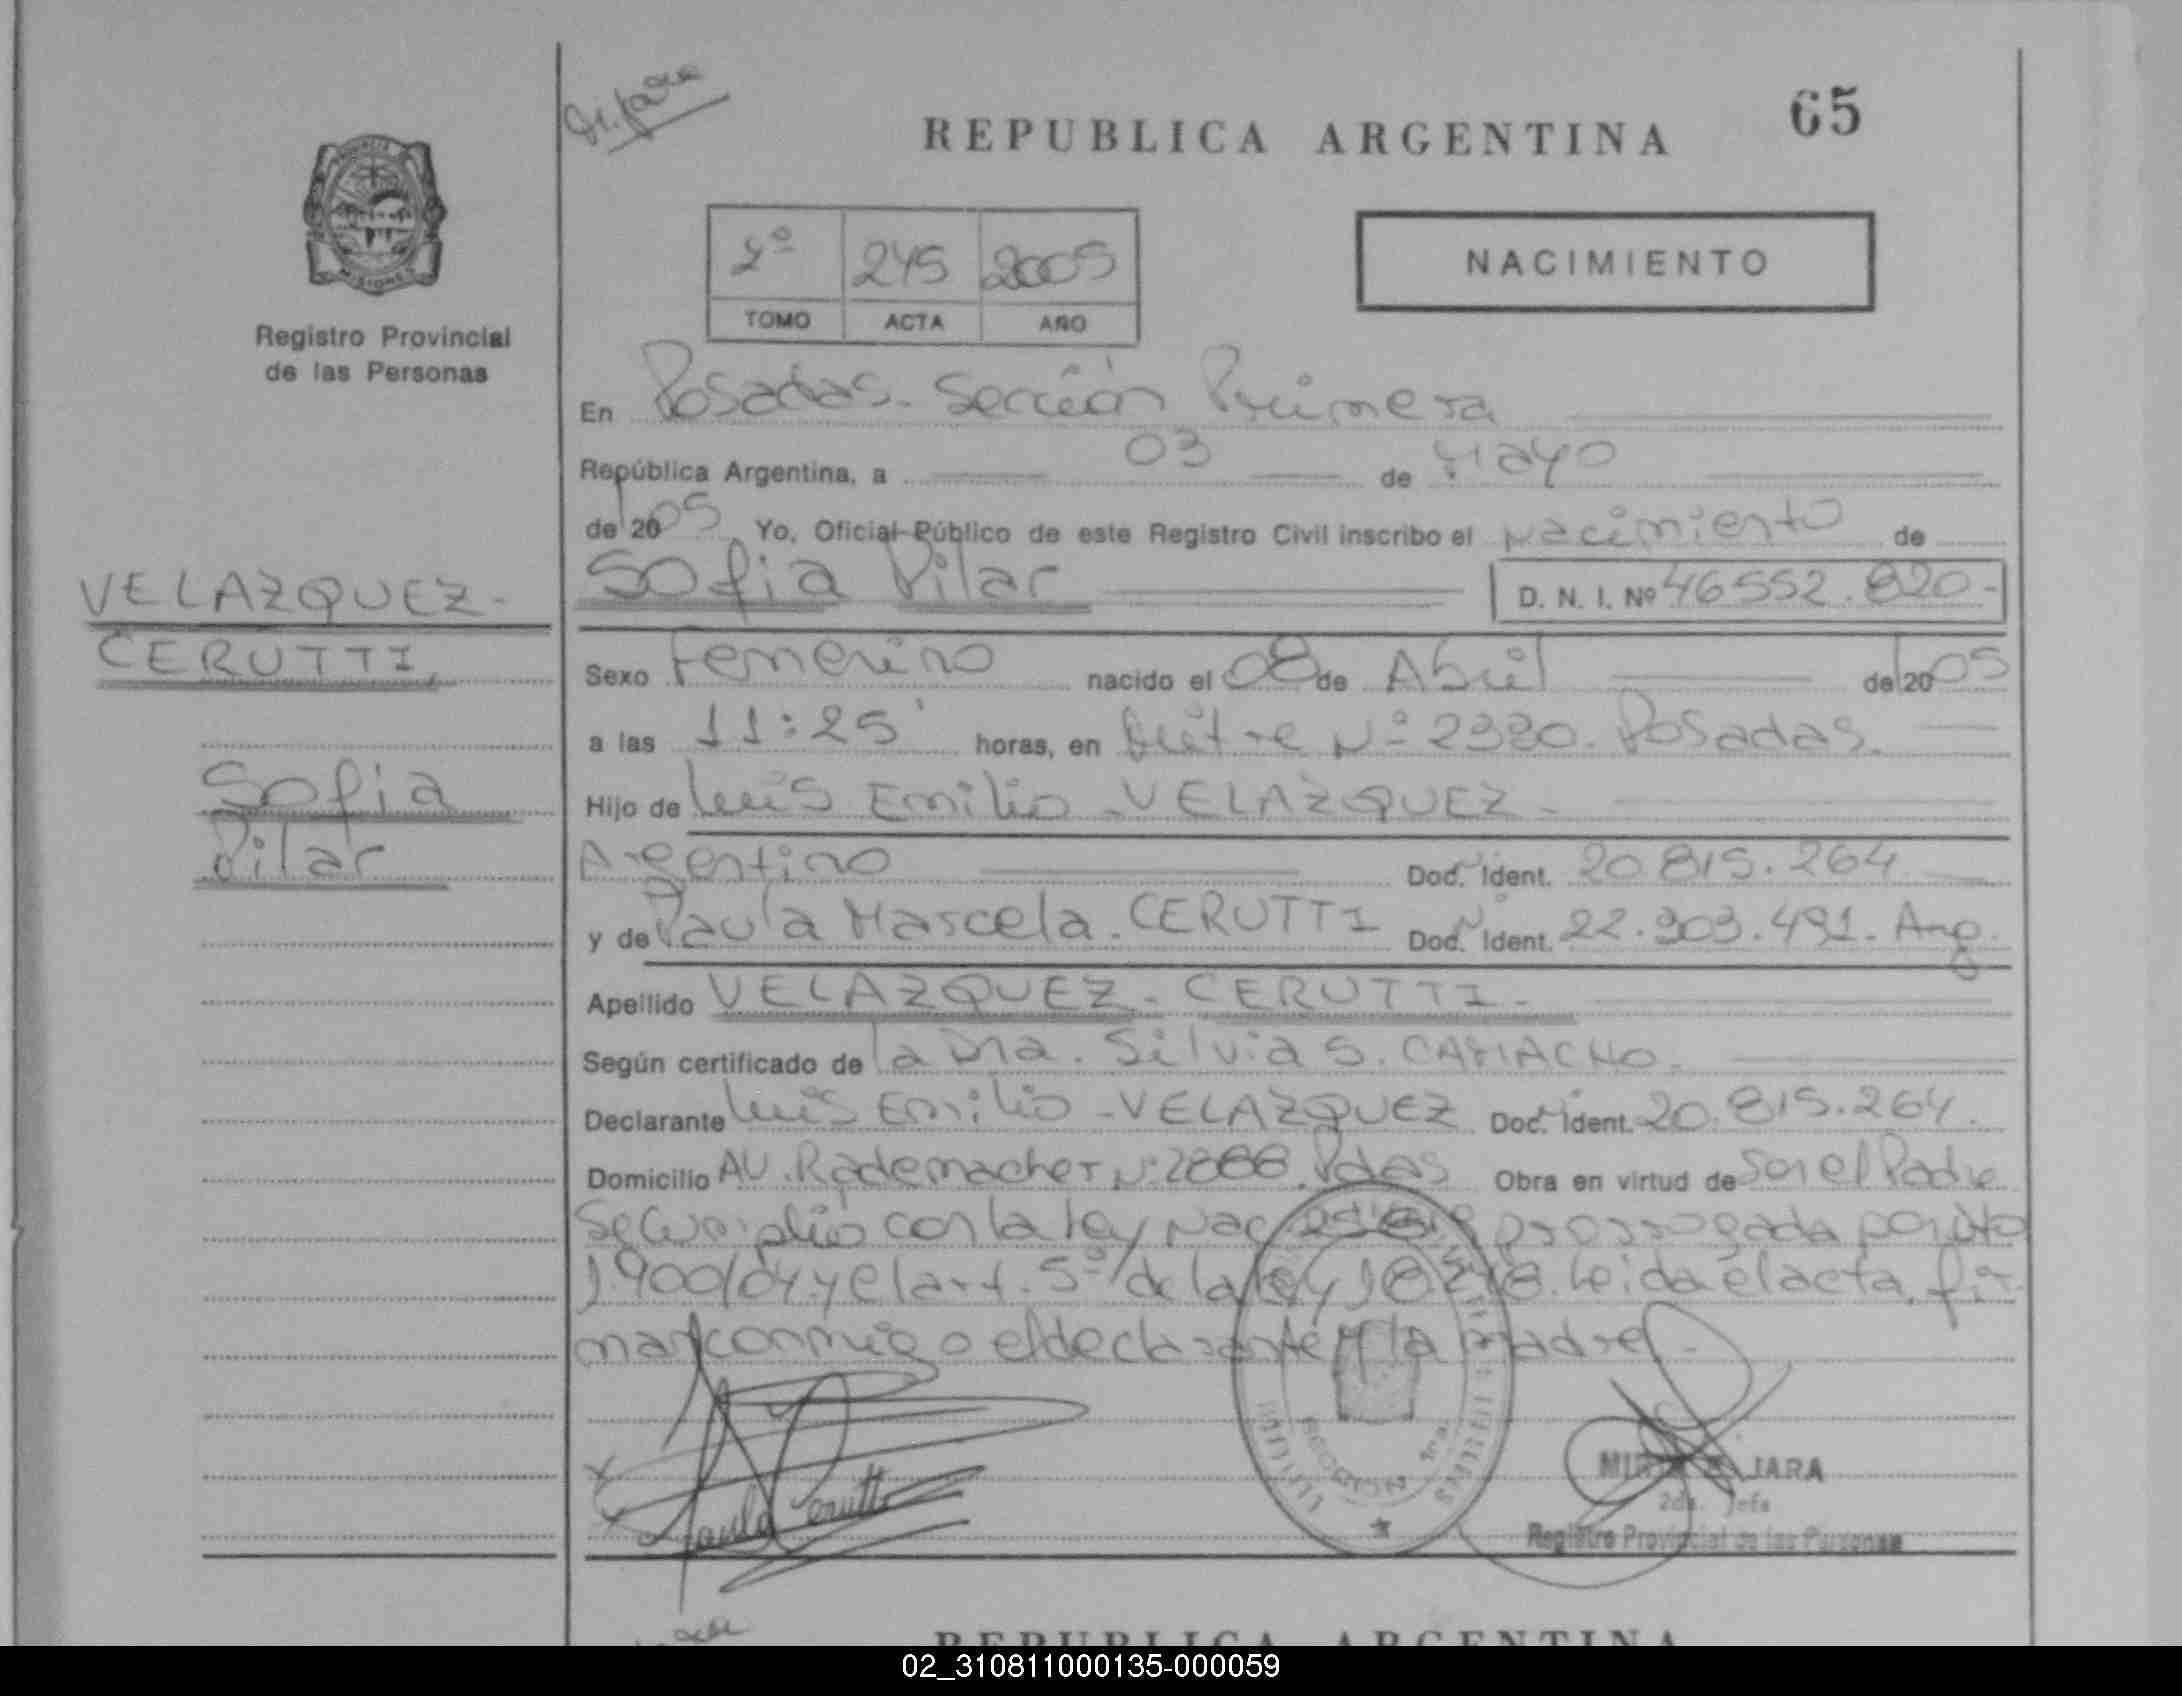 REPUBLICA ARGENTINA
65
Registro Provincial
de las Personas
2º 245 2005
TOMO ACTA AÑO
NACIMIENTO
En Posadas. Sección Primera
República Argentina, a 03 de Mayo
de 2005 Yo, Oficial Público de este Registro Civil inscribo el nacimiento de
Sofia Pilar D. N. I. Nº 46552.820-
VELAZQUEZ-
CERUTTI
Sofia
Pilar
Sexo Femenino nacido el 08 de Abril de 2005
a las 11:25' horas, en Bŕitre Nº 2320. Posadas.
Hijo de Luis Emilio -VELAZQUEZ-
Argentino Doc. Ident. 20.815.264
y de Paula Marcela. CERUTTI Doc. Ident. 22.303.491. Arg.
Apellido VELAZQUEZ- CERUTTI-
Según certificado de la Dra. Silvia S. CAMACHO.
Declarante Luis Emilio -VELAZQUEZ Doc. Ident. 20.815.264.
Domicilio AV. Rademacher Nº 2888. Pdas Obra en virtud de Ser el Padre
Se cumplió con la ley Nac prorrogada por Dto
1900/04 y el art. 5º de la ley 18248. Leida el acta, fir
man conmigo el declarante y la madre.
Paula Cerutti
SECCION 1ra.
JARA
2da. Jefa
Registro Provincial de las Personas
REPUBLICA ARGENTINA
02_310811000135-000059